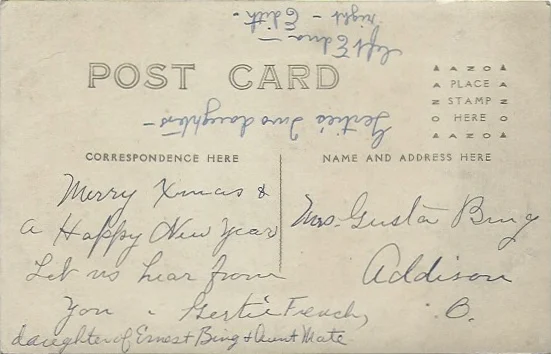 left Edna —
right - Edith.
Gertie's Two daughters -
POST CARD
A A Z O A
A PLACE A
Z STAMP Z
O HERE O
A A Z O A
CORRESPONDENCE HERE
NAME AND ADDRESS HERE
Merry Xmas &
a Happy New Year
Let us hear from
You . Gertie French,
daughter of Ernest Bing + Aunt Mate
Mrs. Gusta Bing
Addison
O.